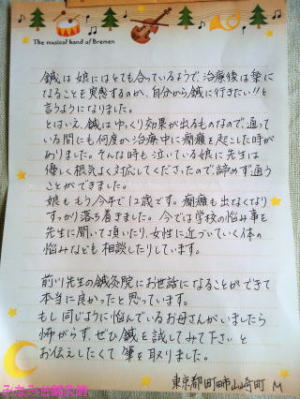 The musical band of Bremen
鍼は娘にはとても合っているようで、治療後は楽に
なることを実感するのか、自分から鍼に行きたい!!と
言うようになりました。
とはいえ、鍼はゆっくり効果が出るものなので、通って
いる間にも何度か治療中に癇癪を起こした時が
ありました。そんな時も泣いている娘に先生は
優しく根気よく対応してくださったので諦めず通う
ことができました。
娘ももう今年で12歳です。癇癪も出なくなり
すっかり落ち着きました。今では学校の悩み事を
先生に聞いて頂いたり、女性に近づいていく体の
悩みなども相談したりしています。
前川先生の鍼灸院にお世話になることができて
本当に良かったと思っています。
もし同じように悩んでいるお母さんがいましたら
怖がらず、ぜひ鍼を試してみて下さいと
お伝えしたくて筆を取りました。
東京都町田市山崎町 M